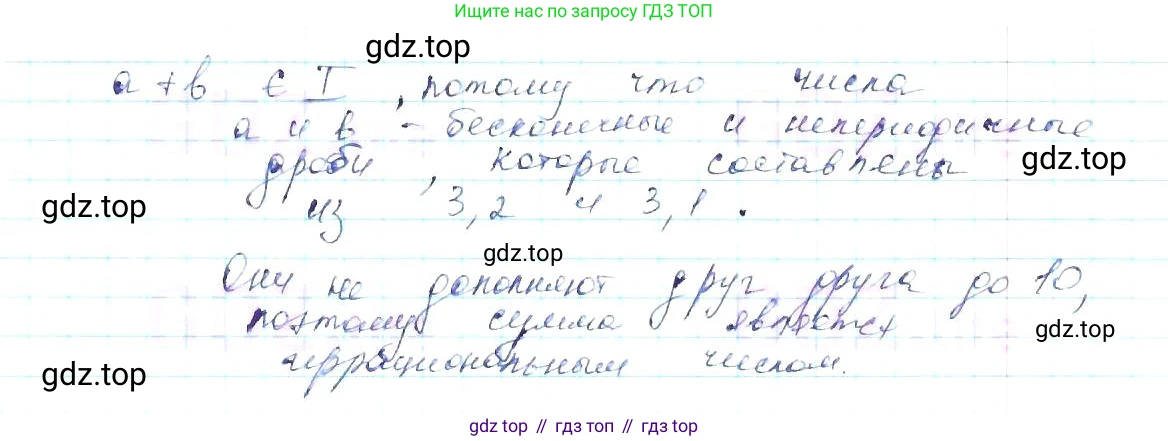 Ищите нас по запросу ГДЗ ТОП
gdz.top
a + b ∈ I, потому что числа
a и b - бесконечные и непериодичные
gdz.top
дроби, которые составлены
gdz.top
из 3, 2 и 3, 1.
gdz.top
Они не дополняют друг друга до 10,
поэтому сумма является
gdz.top
gdz.top
иррациональным числом.
gdz top // гдз топ // gdz top // гдз топ